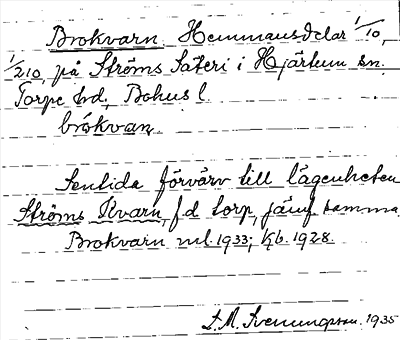 Brokvarn. Hemmansdelar 1/10,
1/210, på Ströms Säteri i Hjärtum sn.
Torpe hd, Bohus l.
brókvan
Sentida förvärv till lägenheten
Ströms Kvarn, f d torp, jämf samma
Brokvarn ml. 1933; Kb. 1928.
S. M. Svenungsson. 1935